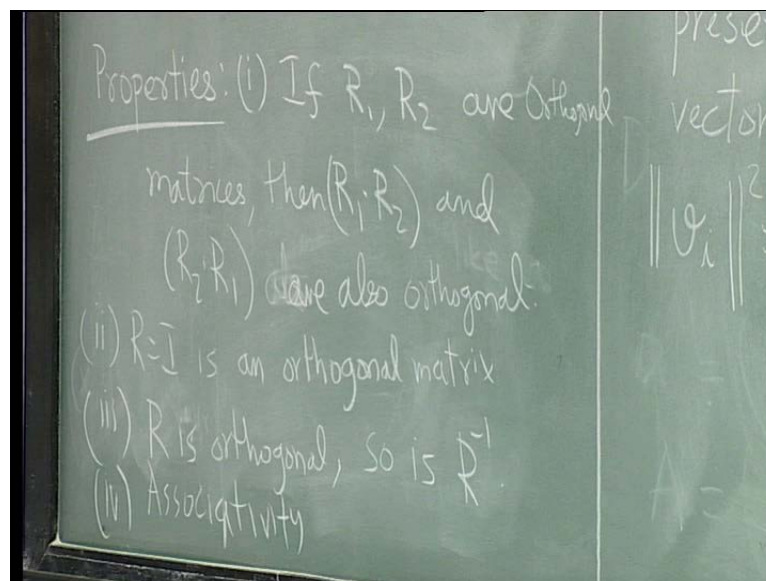 Properties: (i) If R₁, R₂ are Orthogonal
matrices, then (R₁·R₂) and
(R₂·R₁) are also orthogonal.
(ii) R=I is an orthogonal matrix
(iii) R is orthogonal, so is R⁻¹.
(iv) Associativity
prese
vector
‖v_i‖²